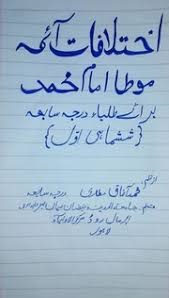 اختلافات آئمہ
موطا امام محمد
برائے طلباء درجہ سابعہ
{ششماہی اوّل}
از قلم: محمد آفاق عطاری درجہ سابعہ
جامعۃ المدینہ فیضان
لاہور